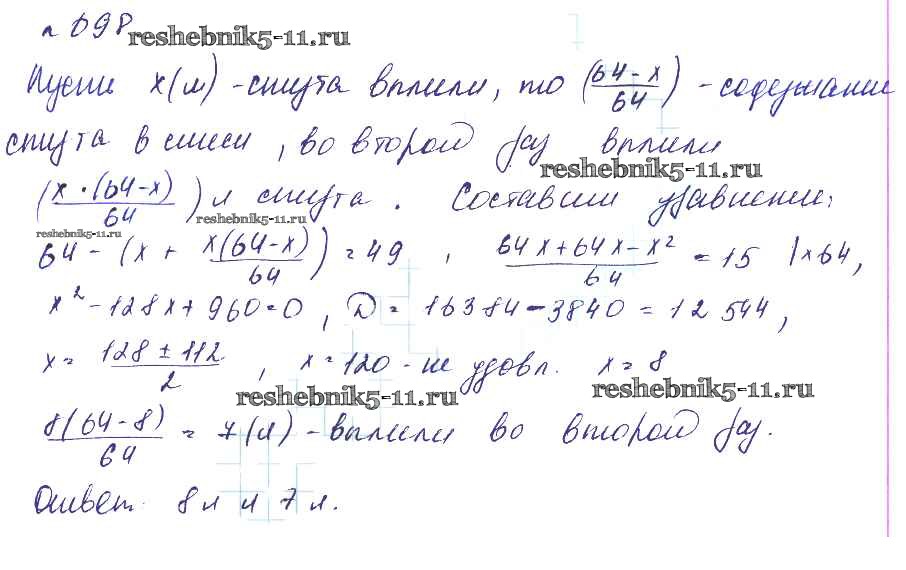 n 698
reshebnik5-11.ru
Пусть x (л) - спирта вылили, то ((64 - x)/64) - содержание
спирта в смеси, во второй раз вылили
reshebnik5-11.ru
((x · (64 - x))/64) л спирта. Составим уравнение:
reshebnik5-11.ru reshebnik5-11.ru
64 - (x + x(64 - x)/64) = 49 , (64x + 64x - x²)/64 = 15 | x 64,
x² - 128x + 960 = 0 , D = 16384 - 3840 = 12 544,
x = (128 ± 112)/2 , x = 120 - не удовл. x = 8
reshebnik5-11.ru reshebnik5-11.ru
8(64 - 8)/64 = 7 (л) - вылили во второй раз.
Ответ: 8 л и 7 л.